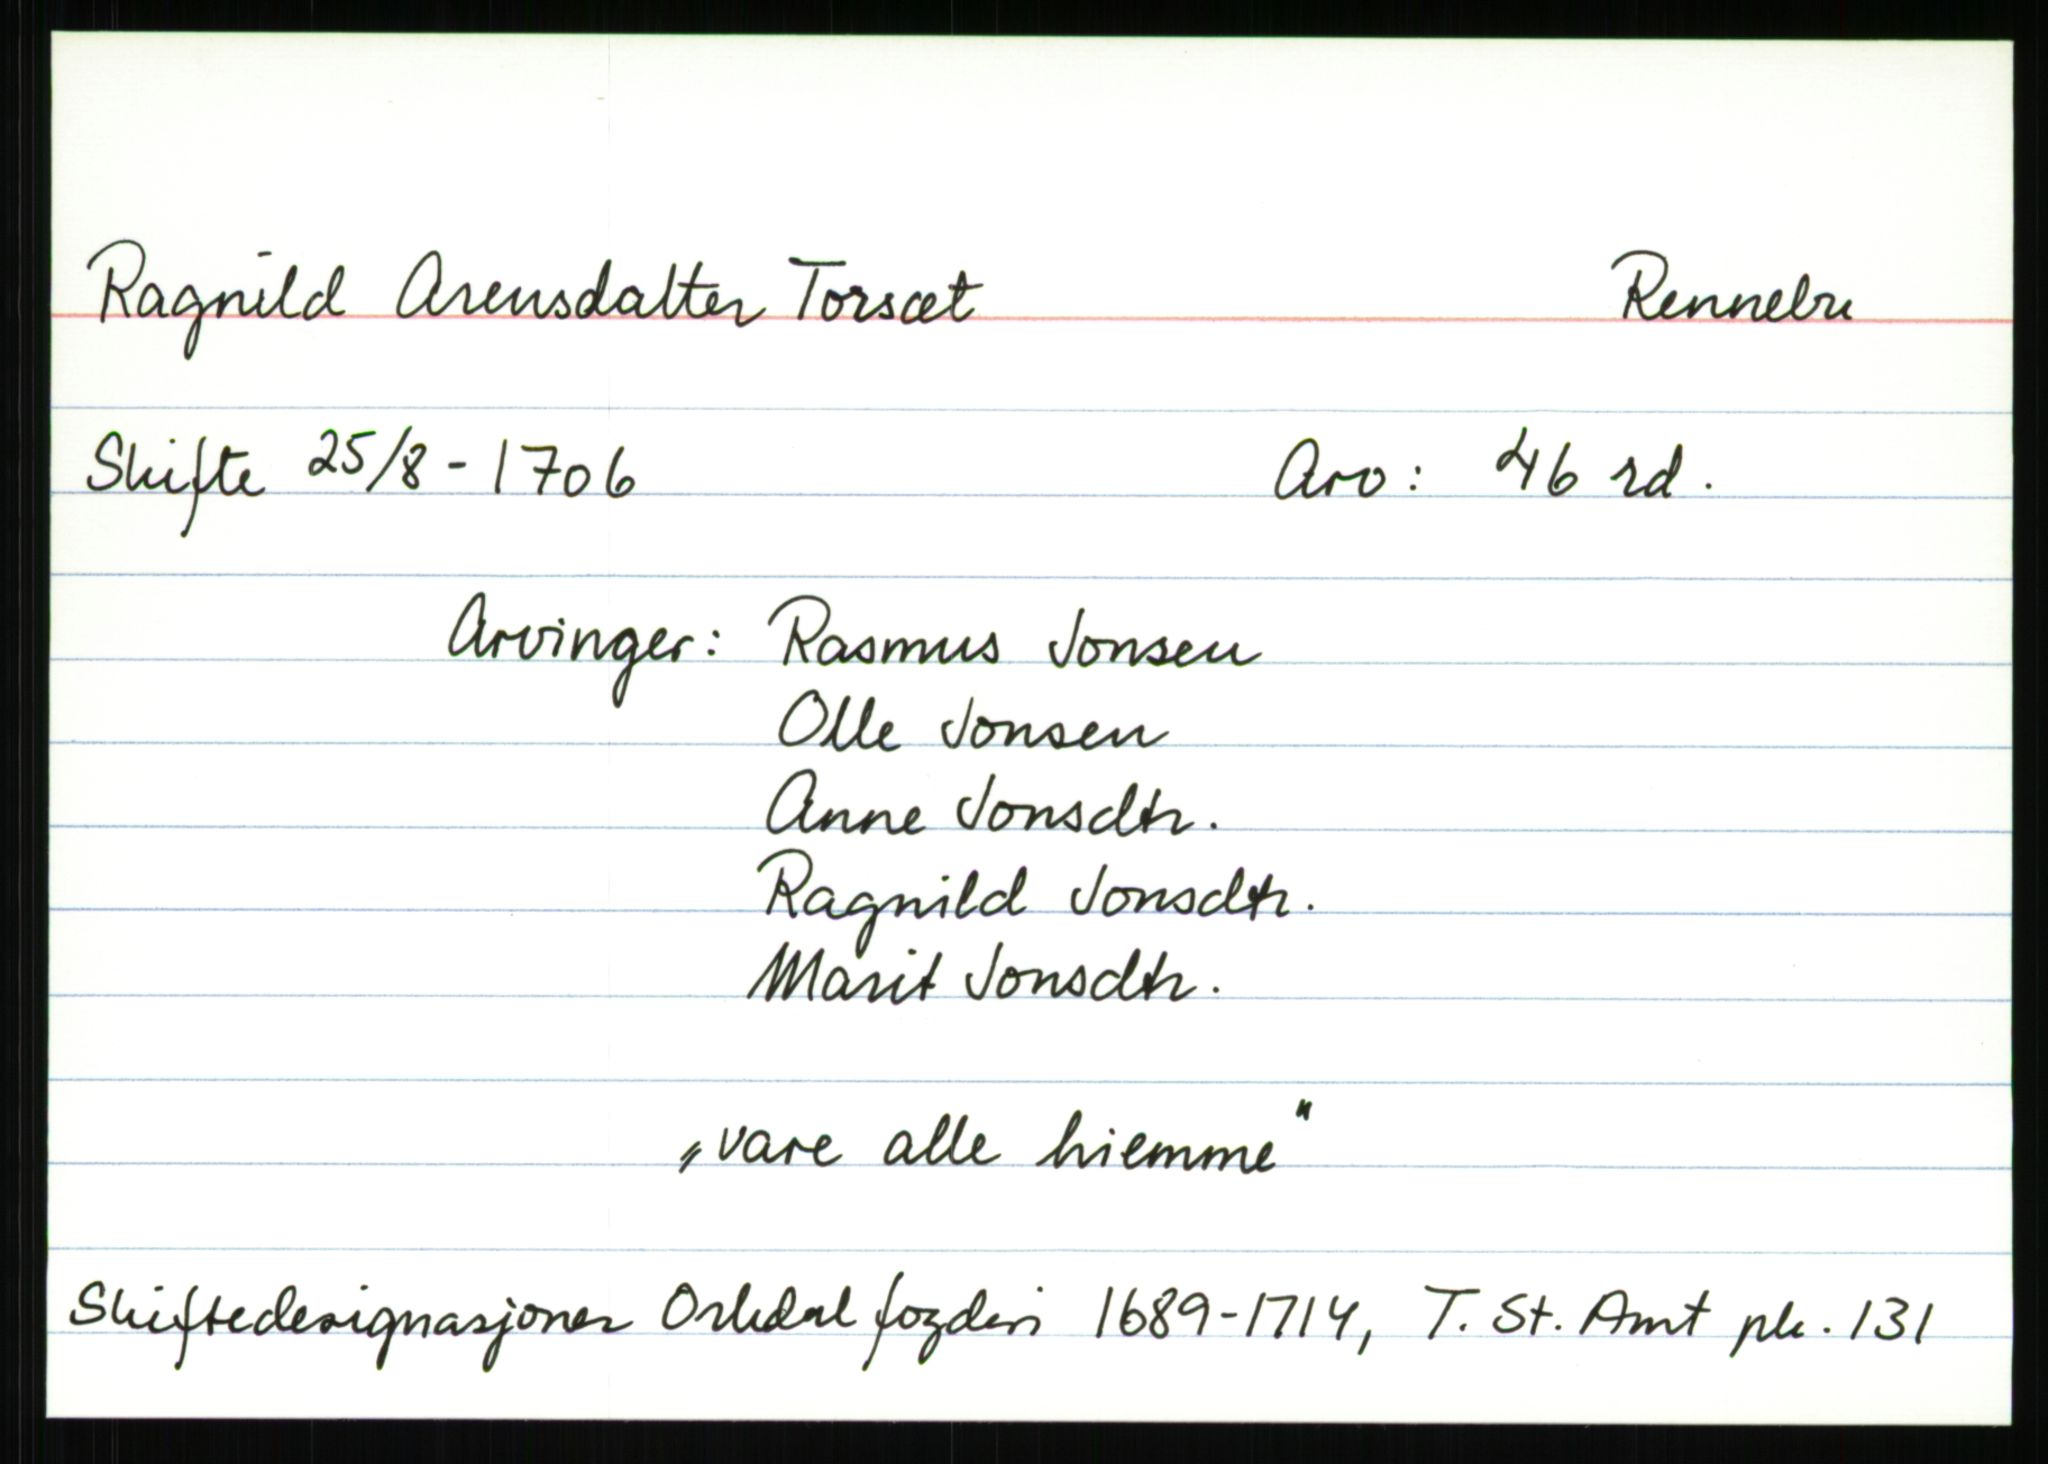 Ragnild Arensdatter Torsæt Rennebu
Skifte 25/8 - 1706 Arv: 46 rd.
Arvinger: Rasmus Jonsen
Olle Jonsen
Anne Jonsdtr.
Ragnild Jonsdtr.
Marit Jonsdtr.
„vare alle hiemme"
Skiftedesignasjoner Orkdal fogderi 1689-1714, T. St. Amt pk. 131